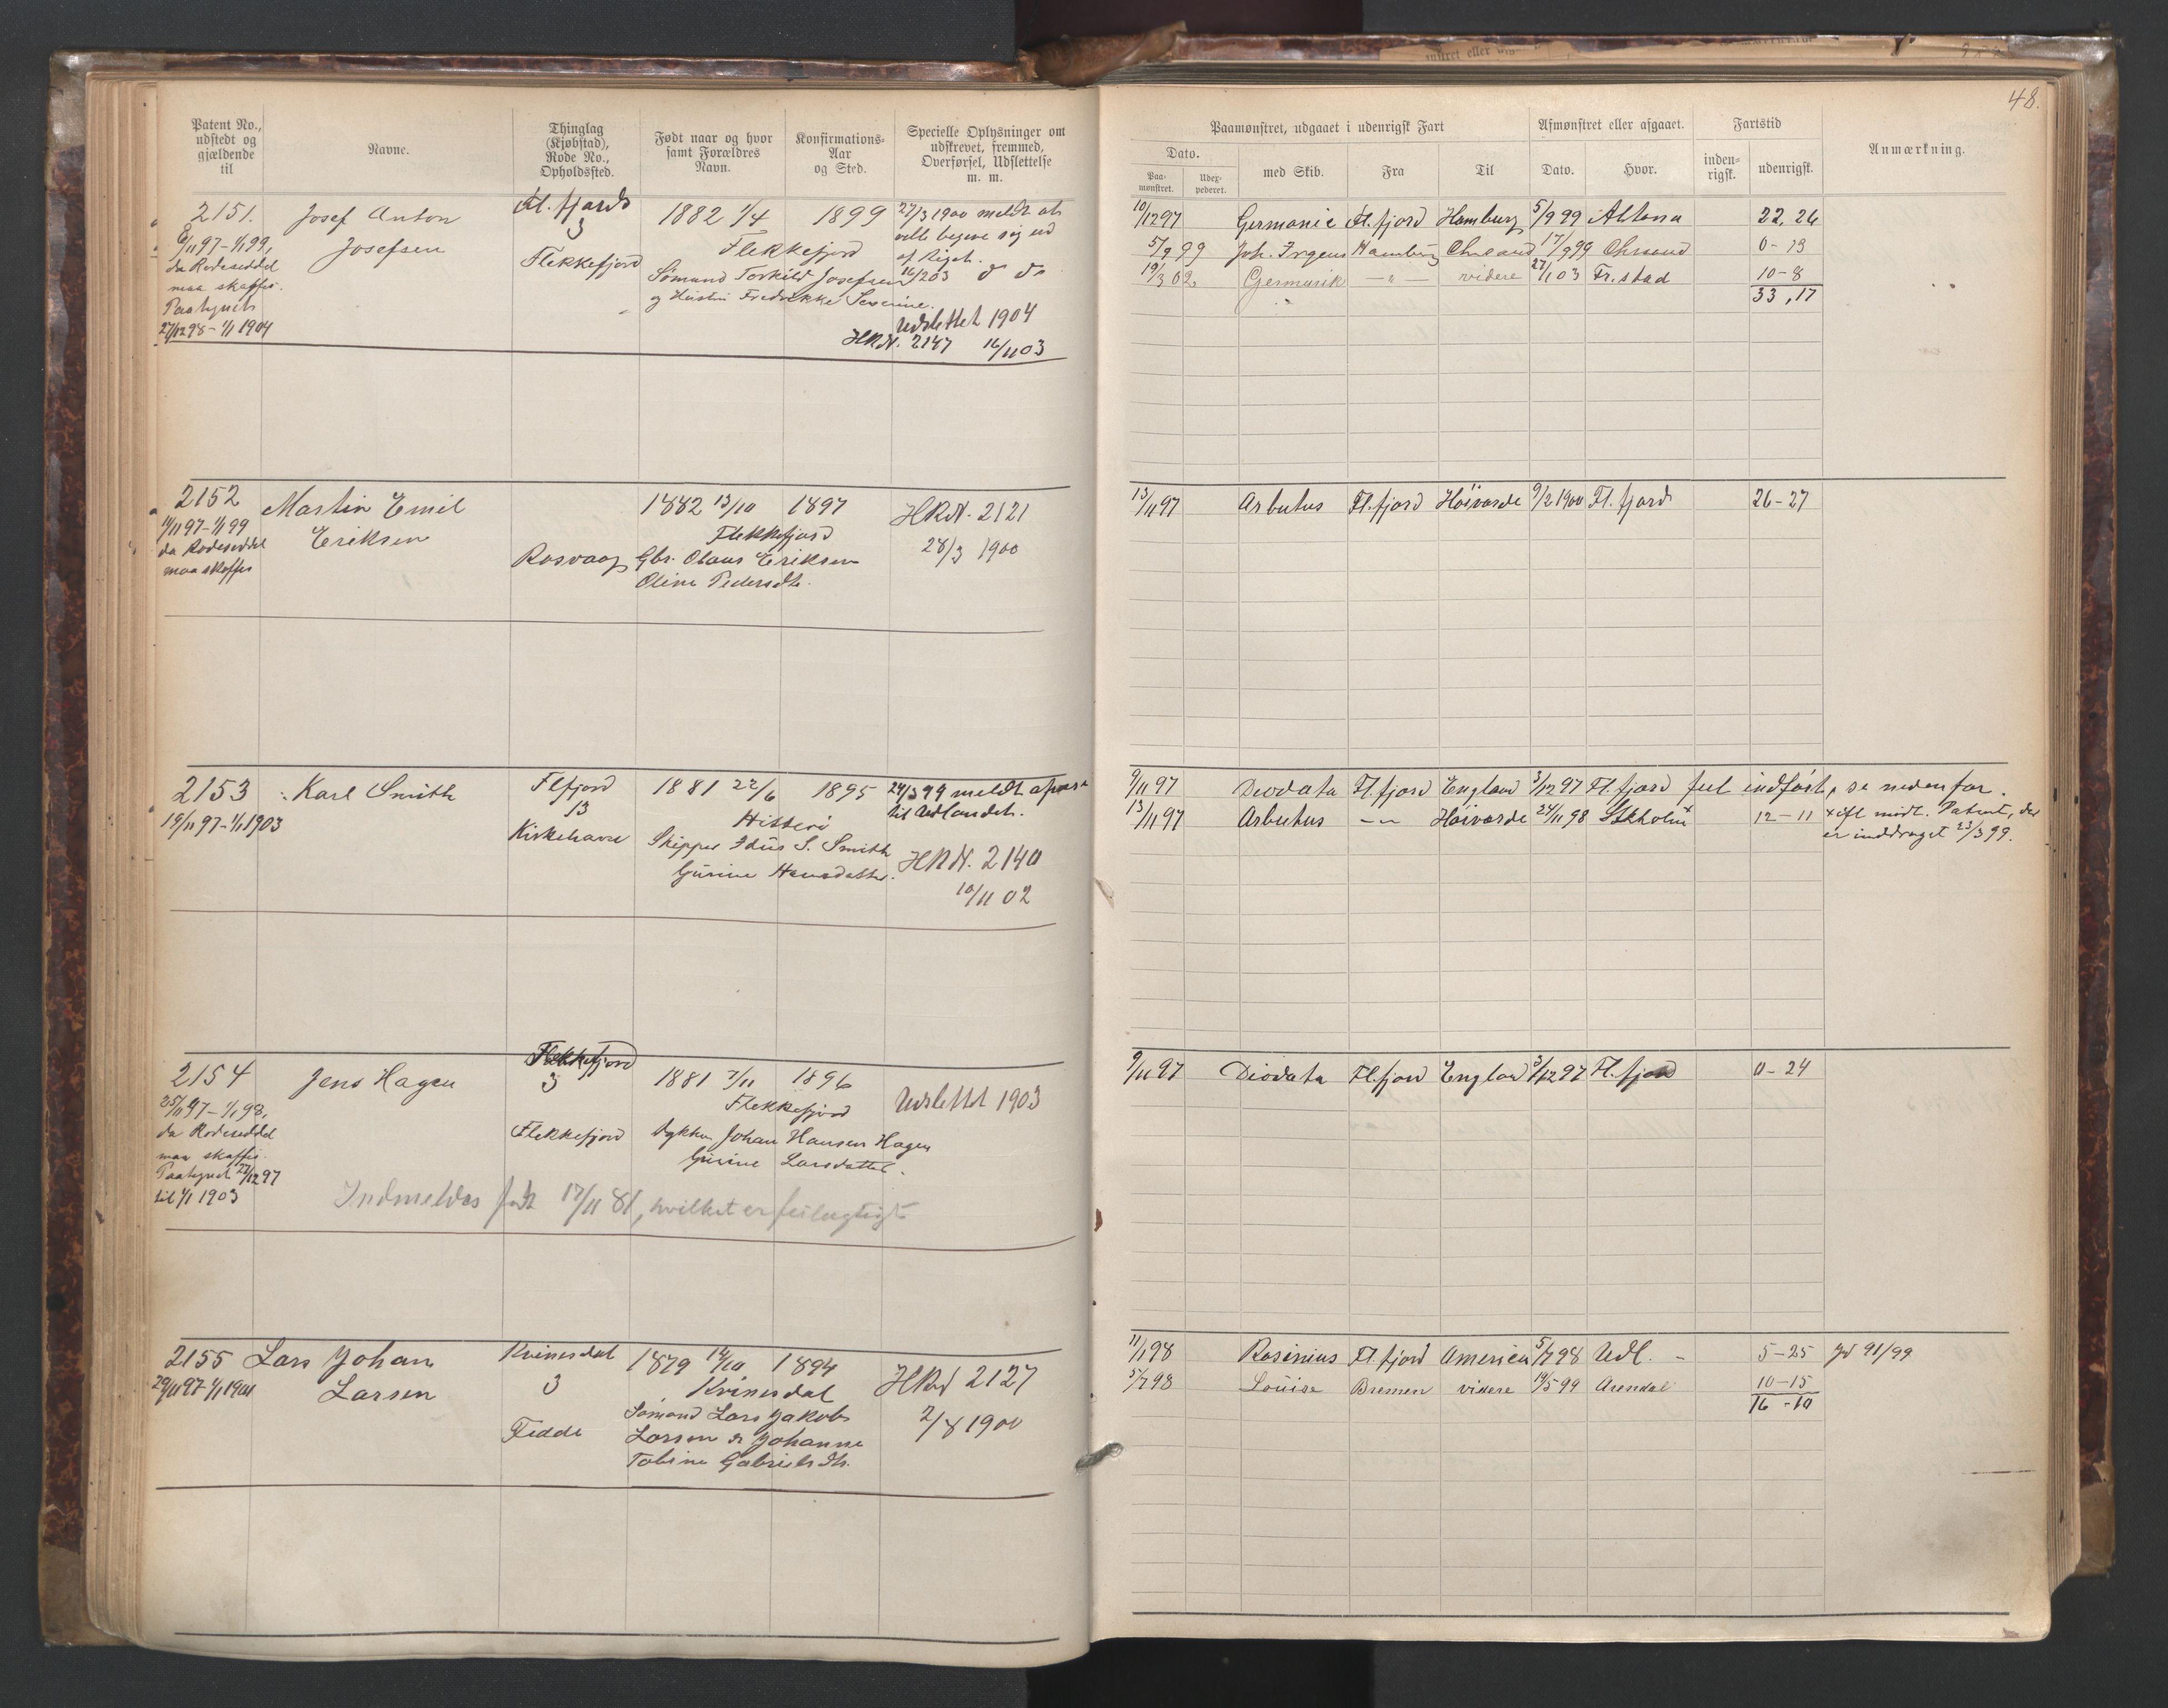 48.
Patent No., udstedt og gjældende til
Navne.
Thinglag (Kjøbstad), Rode No., Opholdssted.
Født naar og hvor samt Forældres Navn.
Konfirmations-Aar og Sted.
Specielle Oplysninger om udskrevet, fremmed, Overførsel, Udslettelse m. m.
Paamønstret, udgaaet i udenrigsk Fart
Afmønstret eller afgaaet.
Fartstid
Anmærkning.
Dato.
Paa-mønstret.
Udex-pederet.
med Skib.
Fra
Til
Dato.
Hvor.
inden-rigsk.
udenrigsk.
2151.
6/11 97 - 1/1 99,
da Rodeseddel
maa skaffes.
Paategnet
27/12 98 - 1/1 1904
Josef Anton
Josefsen
Fl.fjord
3
Flekkefjord
1882 1/4 1899
Flekkefjord
Sømand Torkild Josefsen
og Hustru Fredrikke Severine.
27/3 1900 meldt at
ville begive sig ud
af Riget.
16/2 03 do do
Udslettet 1904
HRN. 2147 16/11 03
10/12 97 Germanic Fl.fjord Hamburg 5/9 99 Altona 22, 26
5/9 99 Joh. Irgens Hamburg 17/9 99 0-13
19/3 02 Germanik - " - videre 27/1 03 Fr.stad 10-8
33, 17
2152
11/11 97 - 1/1 99
da Rodeseddel
maa skaffes
Martin Emil
Eriksen
Rosvaag
1882 13/10 1897
Flekkefjord
Gbr. Olaus Eriksen
Oline Pedersdtr.
HRN. 2121
28/3 1900
13/11 97 Arbutus Fl.fjord Höivarde 9/2 1900 Fl.fjord 26-27
2153
19/11 97 - 1/1 1903
Karl Smith
Flfjord
13
Kirkehavn
1881 22/6 1895
Hitterö
Skipper S. Smith
Gurine Hansdatter.
24/3 99 meldt
til Udlandet.
HRN. 2140
10/11 02
9/11 97 Deodata Fl.fjord England 3/12 97 Fl.fjord feil indført, se nedenfor.
13/11 97 Arbutus - " - Höivarde 24/11 98 Stkholm x 12-11 x ifl midt. Patent, der
er inddraget 23/3 99.
2154
25/11 97 - 1/1 98,
da Rodeseddel
maa skaffes.
Paategnet 27/12 97
til 1/1 1903
Jens Hagen
Flekkefjord
3
Flekkefjord
1881 7/11 1896
Flekkefjord
Johan Hansen Hagen
Gurine Larsdatter.
Udslettet 1903
Indmeldes født 17/11 81, hvilket er feilagtigt
9/11 97 Diodata Fl.fjord England 3/12 97 Fl.fjord 0-24
2155
29/11 97 - 1/1 1901
Lars Johan
Larsen
Kvinesdal
3
Fedde
1879 14/10 1894
Kvinesdal
Sømand Lars Jakob
Larsen & Johanne
Tobine Gabrielsdtr.
HRN 2127
2/8 1900
11/1 98 Rosinius Fl.fjord America 5/7 98 Udl. - 5-25 Jd 91/99
5/7 98 Louise Bremen videre 19/5 99 Arendal 10-15
16-10